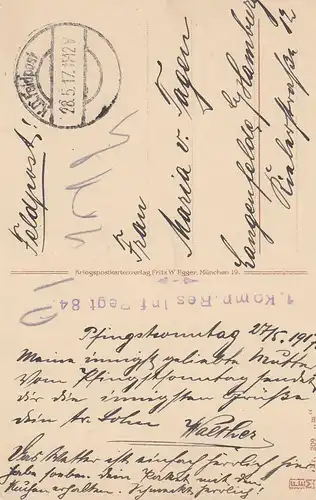 K.D. Feldpost
28.5.17. 11-12 V
Feldpost!
Frau
Maria v. Tagen
Langenfelde b/Hamburg
Kielerstraße 12
Kriegspostkartenverlag Fritz W. Egger, München 19.
1. Komp. Res. Inf. Regt 84.
Pfingstsonntag 27/5. 1917
Meine innigst geliebte Mutter
Vom Pfingstsonntag sendet
dir die innigsten Grüße
dein tr. Sohn Walther
Das Wetter ist einfach herrlich hier
habe soeben dein Packet mit dem
Kuchen erhalten. Schmeckt herrlich!